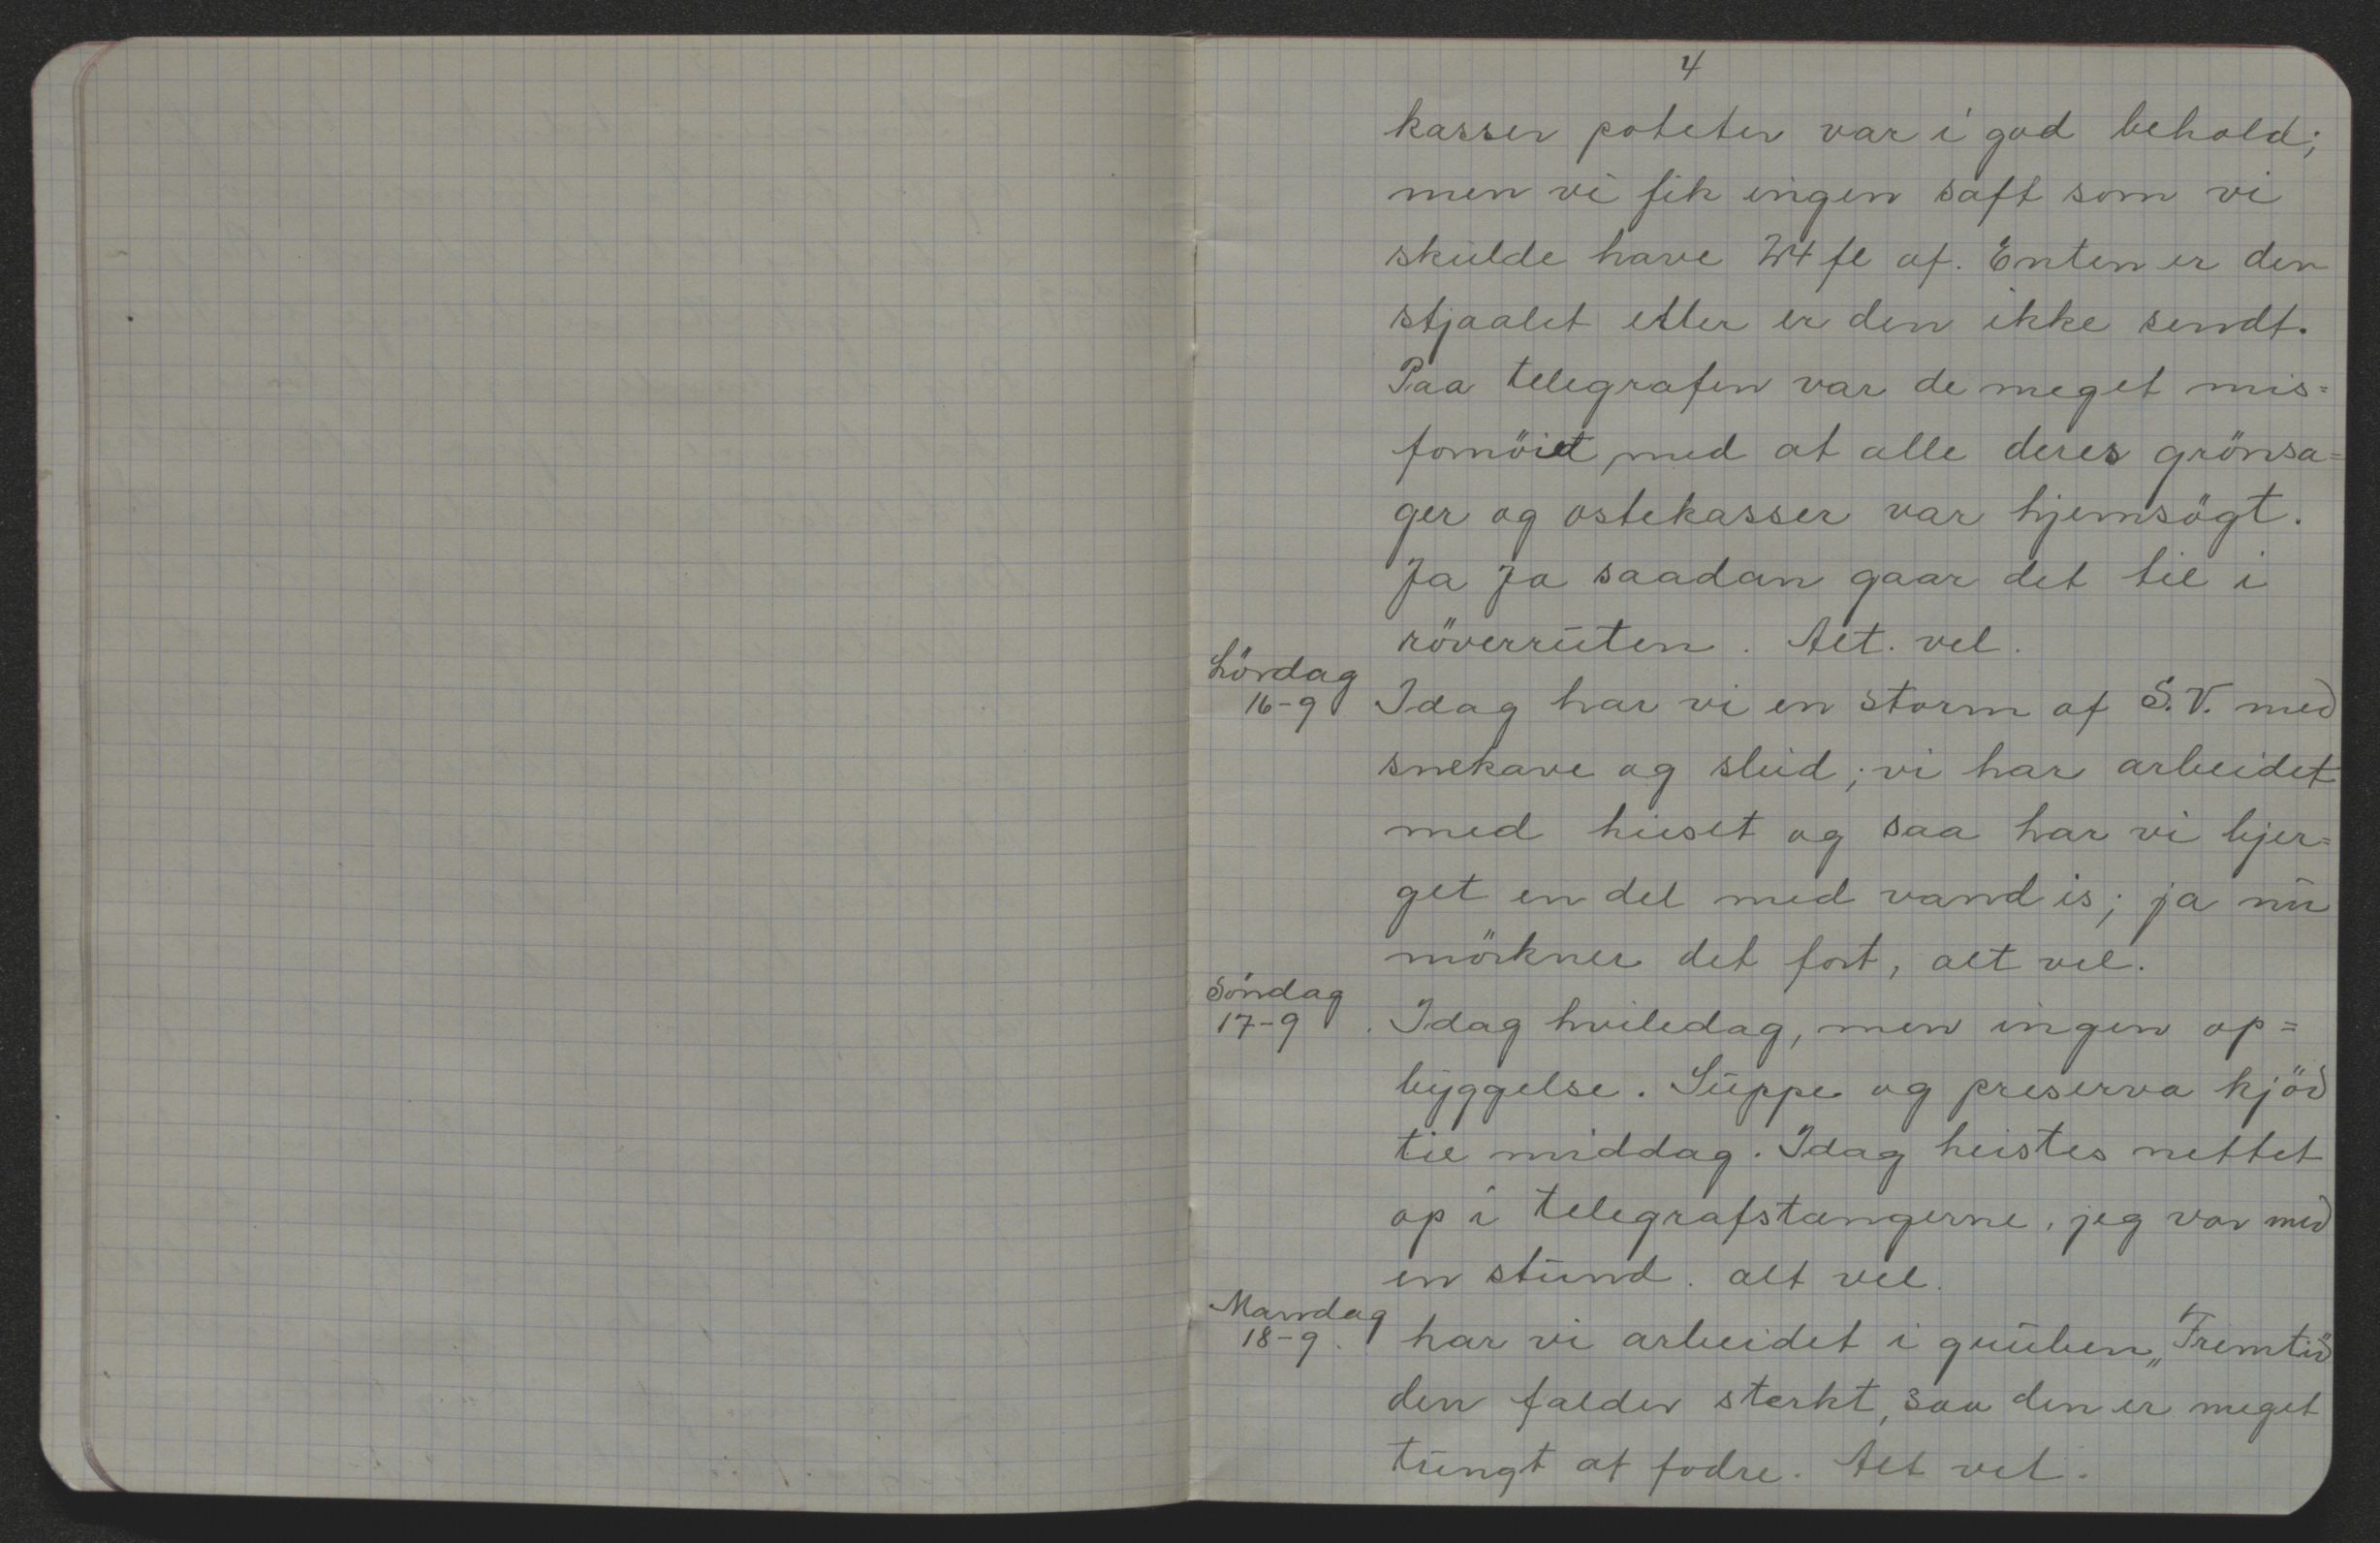 4
kasser poteter var i god behold;
men vi fik ingen saft som vi
skulde have 24 fl af. Enten er den
stjaalet eller er den ikke sendt.
Paa telegrafen var de meget mis=
fornöiet med at alle deres grönsa=
ger og ostekasser var hjemsögt.
Ja Ja saadan gaar det til i
röverruten. Alt. vel.
Lördag
16-9 Idag har vi en storm af S.V. med
snekave og slud; vi har arbeidet
med huset og saa har vi bjer=
get en del med vand is; ja nu
mörkner det fort, alt vel.
Söndag
17-9 . Idag hviledag, men ingen op=
byggelse. Suppe og preserva kjöd
til middag. Idag heistes nettet
op i telegrafstængerne, jeg var med
en stund. alt vel.
Mandag
18-9. har vi arbeidet i gruben „Fremtid"
den falder sterkt, saa den er meget
tungt at fodre. Alt vel.